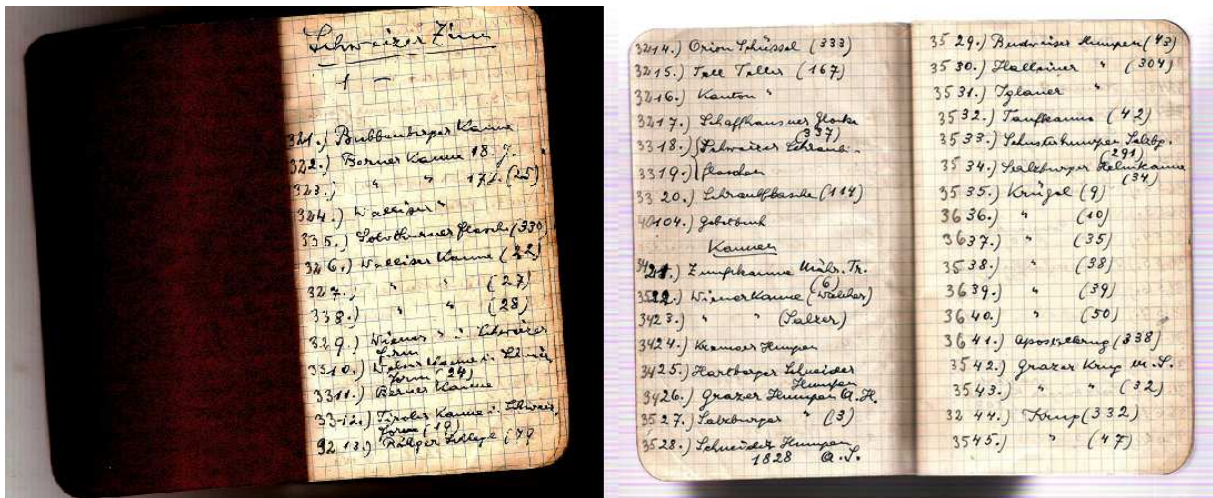 Schweizer Zinn
1 –
321.) Bubbenberger Kanne
322.) Berner Kanne 18. J.
323.) " " 17J. (25)
324.) Walliser "
335.) Solothurner flasche (330)
326.) Walliser Kanne (22)
327.) " " (27)
338.) " " (28)
329.) Wiener " i. Schweizer
Form
3310.) Kanne i. Schweiz
Form (24)
3311.) Berner Kanne
3312.) Tiroler Kanne i. Schweiz
Form (19)
3213.)
3214.) Orion Schüssel (333)
3215.) Tell Teller (167)
3216.) Kanton "
3217.) Schaffhausner Glocke
(337)
3318.) Schweizer Schraub-
3319.) flaschen
3320.) Schraubflasche (114)
40104.) Gebetbuch
Kannen
3421.) Zunftkanne Mähr. Tr.
(6)
3522.) Wiener Kanne (Walcher)
3423.) " " (Salzer)
3424.) Kremser Humpen
3425.) Hartberger Schneider
Humpen
3426.) Grazer Humpen A. H.
3527.) Salzburger " (3)
3528.) Schneider Humpen
1828 A. S.
3529.) Budweiser Humpen (43)
3530.) Halleiner " (304)
3531.) Iglauer "
3532.) Taufkanne (42)
3533.) Schusterhumpen Salzbg.
(291)
3534.) Salzburger Reliefkanne
(34)
3535.) Krügel (9)
3636.) " (10)
3637.) " (35)
3538.) " (38)
3639.) " (39)
3640.) " (50)
3641.) Apostelkrug (338)
3542.) Grazer Krug m. S.
3543.) " " (32)
3244.) Krug (332)
3545.) " (47)